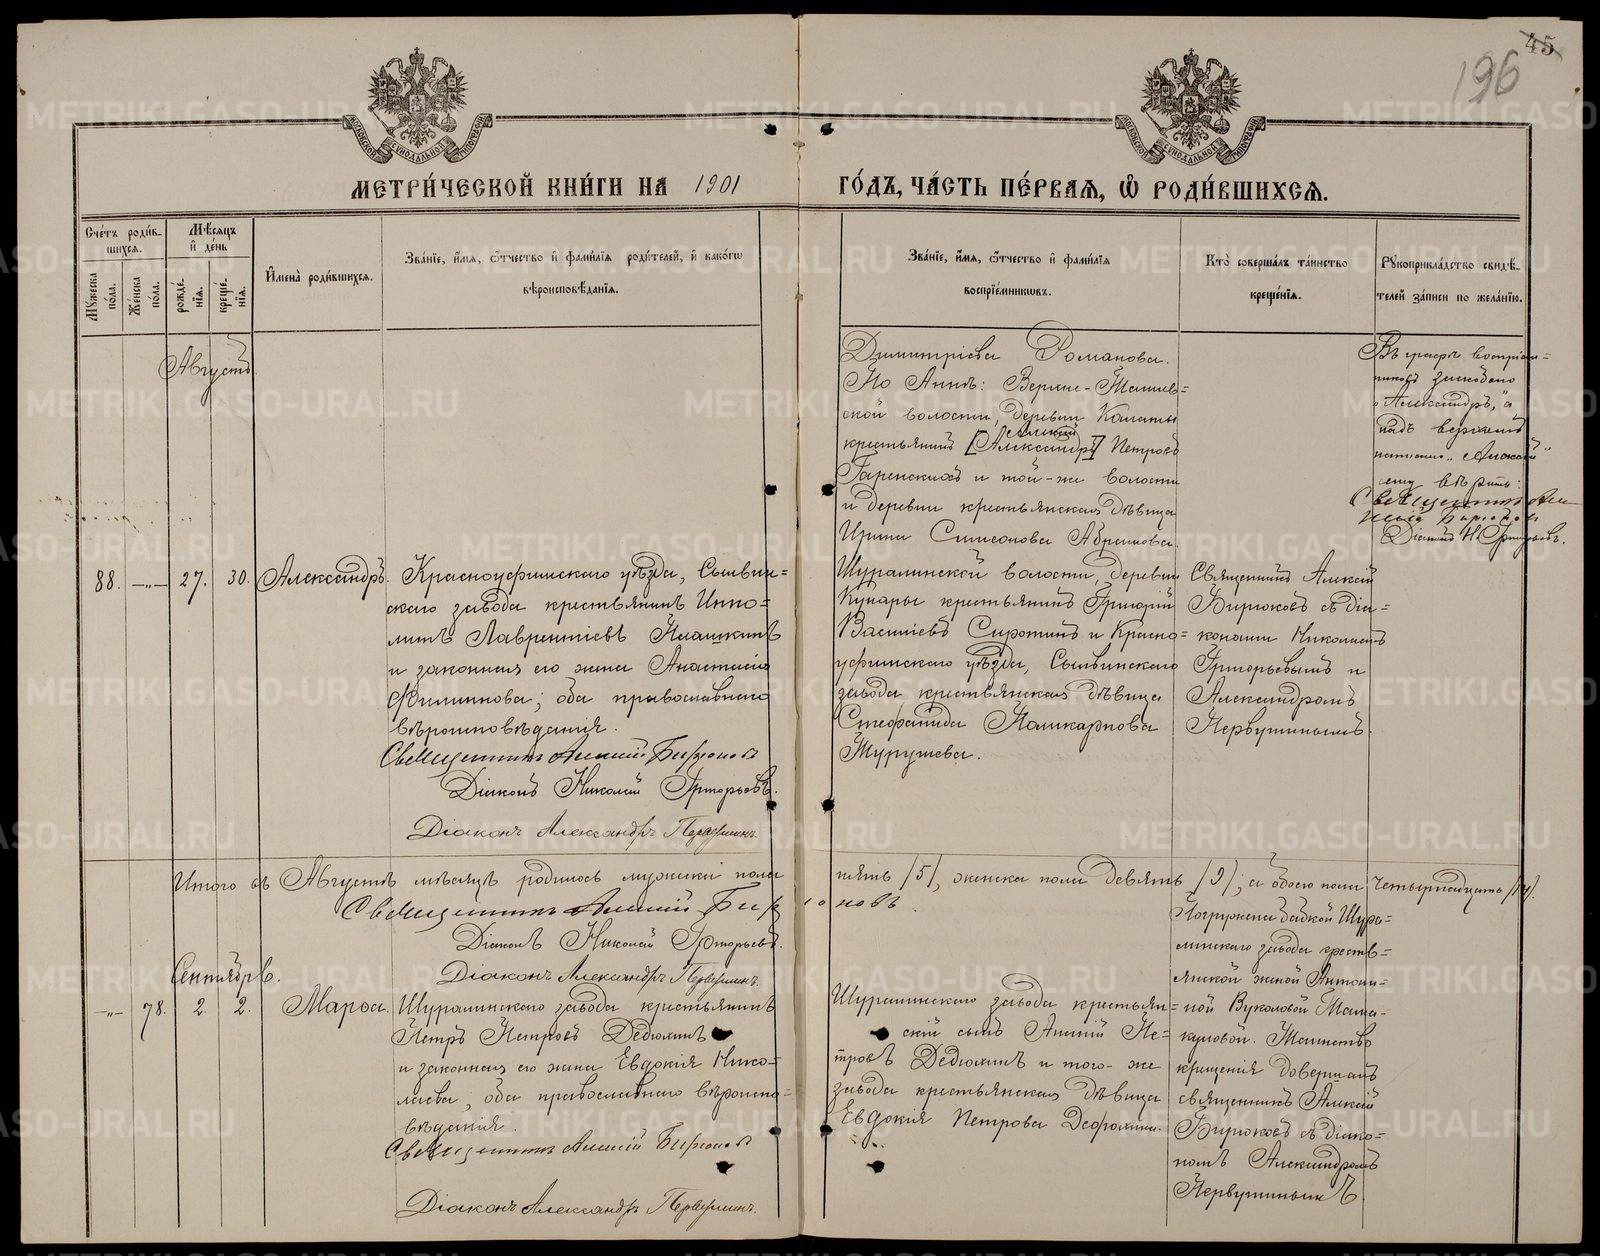 45
196
МОСКОВСКОЙ СѴНОДАЛЬНОЙ ТИПОГРАФІИ
МОСКОВСКОЙ СѴНОДАЛЬНОЙ ТИПОГРАФІИ
МЕТРИ́ЧЕСКОЙ КНИ́ГИ НА 1901 ГО́ДЪ, ЧА́СТЬ ПЕ́РВАѦ, Ѡ РОДИ́ВШИХСѦ.
Сче́тъ роди́вшихсѧ.
Мѣ́сѧцъ и҆ де́нь
Мꙋ́жеска по́ла.
Же́нска по́ла.
рожде́нїѧ.
креще́нїѧ.
И҆мена̀ роди́вшихсѧ.
Зва́нїе, и҆́мѧ, ѻ҆́тчество и҆ фами́лїѧ роди́телей, и҆ како́гѡ
вѣроисповѣ́данїѧ.
Зва́нїе, и҆́мѧ, ѻ҆́тчество и҆ фами́лїѧ
воспрїе́мникѡвъ.
Кто̀ соверша́лъ та́инство
креще́нїѧ.
Рꙋкоприкла́дство свидѣ́-
телей за́писи по жела́нїю.
Августъ
Димитріева Романова.
По Аннѣ: Верхне-Тагиль=
ской волости, деревни Калаты
крестьянинъ [Александръ] Алексій Петровъ
Гаренскихъ и той-же волости
и деревни крестьянская дѣвица
Ирина Симеонова Абрамова.
Въ графѣ воспріем=
никовъ зачеркнуто
"Александръ," а
надъ верхомъ
написано "Алексій"
ему вѣрить:
Священникъ Але
ксій Бирюковъ
Діаконъ Н. Григорьевъ.
88. -"- 27. 30. Александръ.
Красноуфимскаго уѣзда, Сылвин=
скаго завода крестьянинъ Иппо=
литъ Лаврентіевъ Плашкинъ
и законная его жена Анастасія
Филиппова; оба православнаго
вѣроисповѣданія.
Священникъ Алексій Бирюковъ
Діаконъ Николай Григорьевъ.
Діаконъ Александръ Первушинъ.
Шуралинской волости, деревни
Кунары крестьянинъ Григорій
Васильевъ Сиротинъ и Красно=
уфимскаго уѣзда, Сылвинскаго
завода крестьянская дѣвица
Стефанида Поликарпова
Турушева.
Священникъ Алексій
Бирюковъ съ діа=
конами Николаемъ
Григорьевымъ и
Александромъ
Первушинымъ.
Итого въ Августѣ мѣсяцѣ родилось мужска пола пять /5/, женска пола девять /9/; а обоего пола четырнадцать /14/.
Священникъ Алексій Бирюковъ.
Діаконъ Николай Григорьевъ.
Діаконъ Александръ Первушинъ.
Сентябрь.
-"- 78. 2. 2. Марѳа.
Шуралинскаго завода крестьянинъ
Петръ Петровъ Дедюхинъ
и законная его жена Евдокія Нико=
лаева, оба православнаго вѣроиспо=
вѣданія.
Священникъ Алексій Бирюковъ
Діаконъ Александръ Первушинъ.
Шуралинскаго завода крестьян=
скій сынъ Алексій Пе=
тровъ Дедюхинъ и того-же
завода крестьянская дѣвица
Евдокія Петрова Дедюхина.
Погружена бабкой Шура=
линскаго завода кресть=
янской женой Антони=
ной Вуколовой
Таинство
крещенія довершалъ
священникъ Алексій
Бирюковъ съ діако=
номъ Александромъ
Первушинымъ.
METRIKI.GASO-URAL.RU